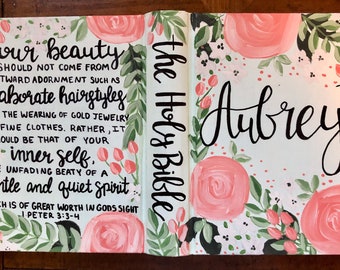 our beauty
SHOULD NOT COME FROM
TWARD ADORNMENT SUCH AS
aborate hairstyles
THE WEARING OF GOLD JEWELRY
FINE CLOTHES. RATHER, IT
OULD BE THAT OF YOUR
inner self,
E UNFADING BEATY OF A
ntle and quiet spirit
ICH IS OF GREAT WORTH IN GODS SIGHT
1 PETER 3:3-4
the Holy Bible
Aubrey